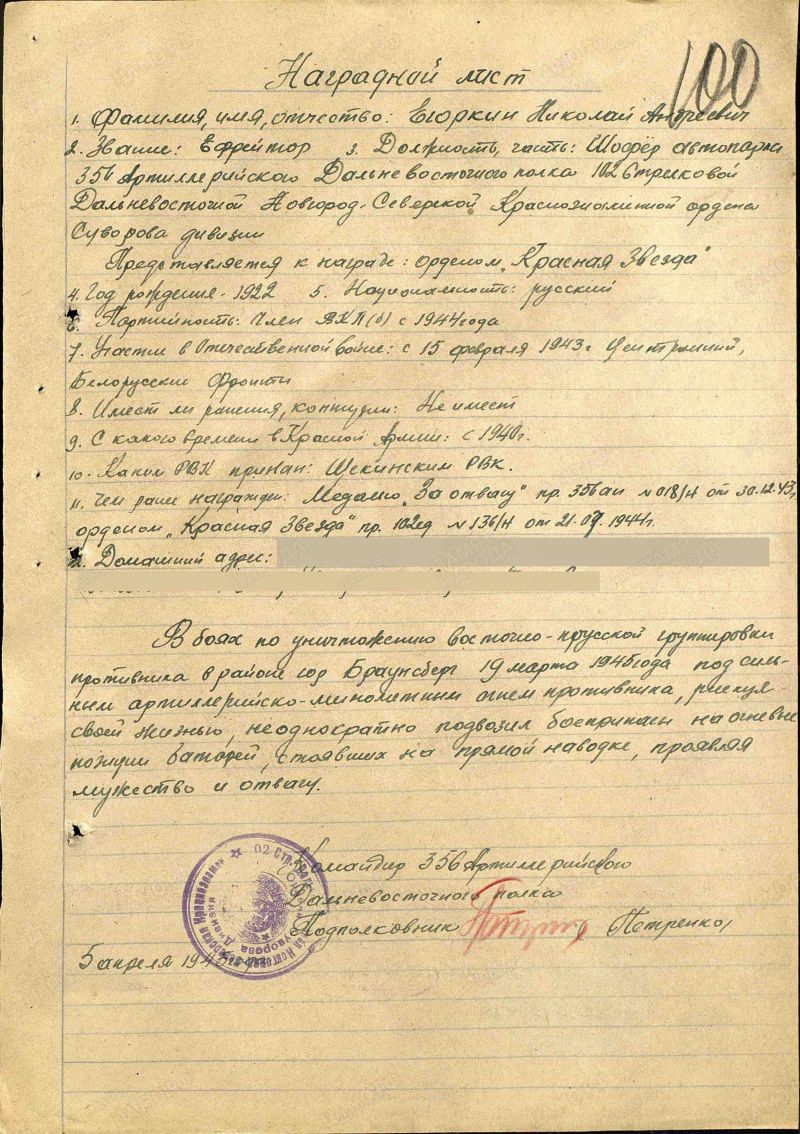 100
Наградной лист
1. Фамилия, имя, отчество: Егоркин Николай
2. Звание: Ефрейтор 3. Должность, часть: Шофёр автопарка
356 Артиллерийского Дальневосточного полка 102 Стрелковой
Дальневосточной Новгород-Северской Краснознаменной ордена
Суворова дивизии
Представляется к награде: орденом „Красная Звезда"
4. Год рождения - 1922 5. Национальность: русский
6. Партийность: Член ВКП(б) с 1944 года
7. Участие в Отечественной войне: с 15 февраля 1943 г. Центральный,
Белорусские фронты
8. Имеет ли ранения, контузии: Не имеет
9. С какого времени в Красной Армии: с 1940 г.
10. Каким РВК призван: Щекинским РВК.
11. Чем ранее награжден: Медалью „За отвагу" пр. 356 ап №018/н от 30.12.43г,
орденом „Красная Звезда" пр. 102сд №136/н от 1944г.
12. Домашний адрес:
В боях по уничтожению восточно-прусской группировки
противника в районе гор Браунсберг 19 марта 1945 года под силь-
ным артиллерийско-минометным огнем противника, рискуя
своей жизнью, неоднократно подвозил боеприпасы на огневые
позиции батарей, стоявших на прямой наводке, проявляя
мужество и отвагу.
Командир 356 Артиллерийского
Дальневосточного полка
Подполковник Петренко/
5 апреля 1945 года